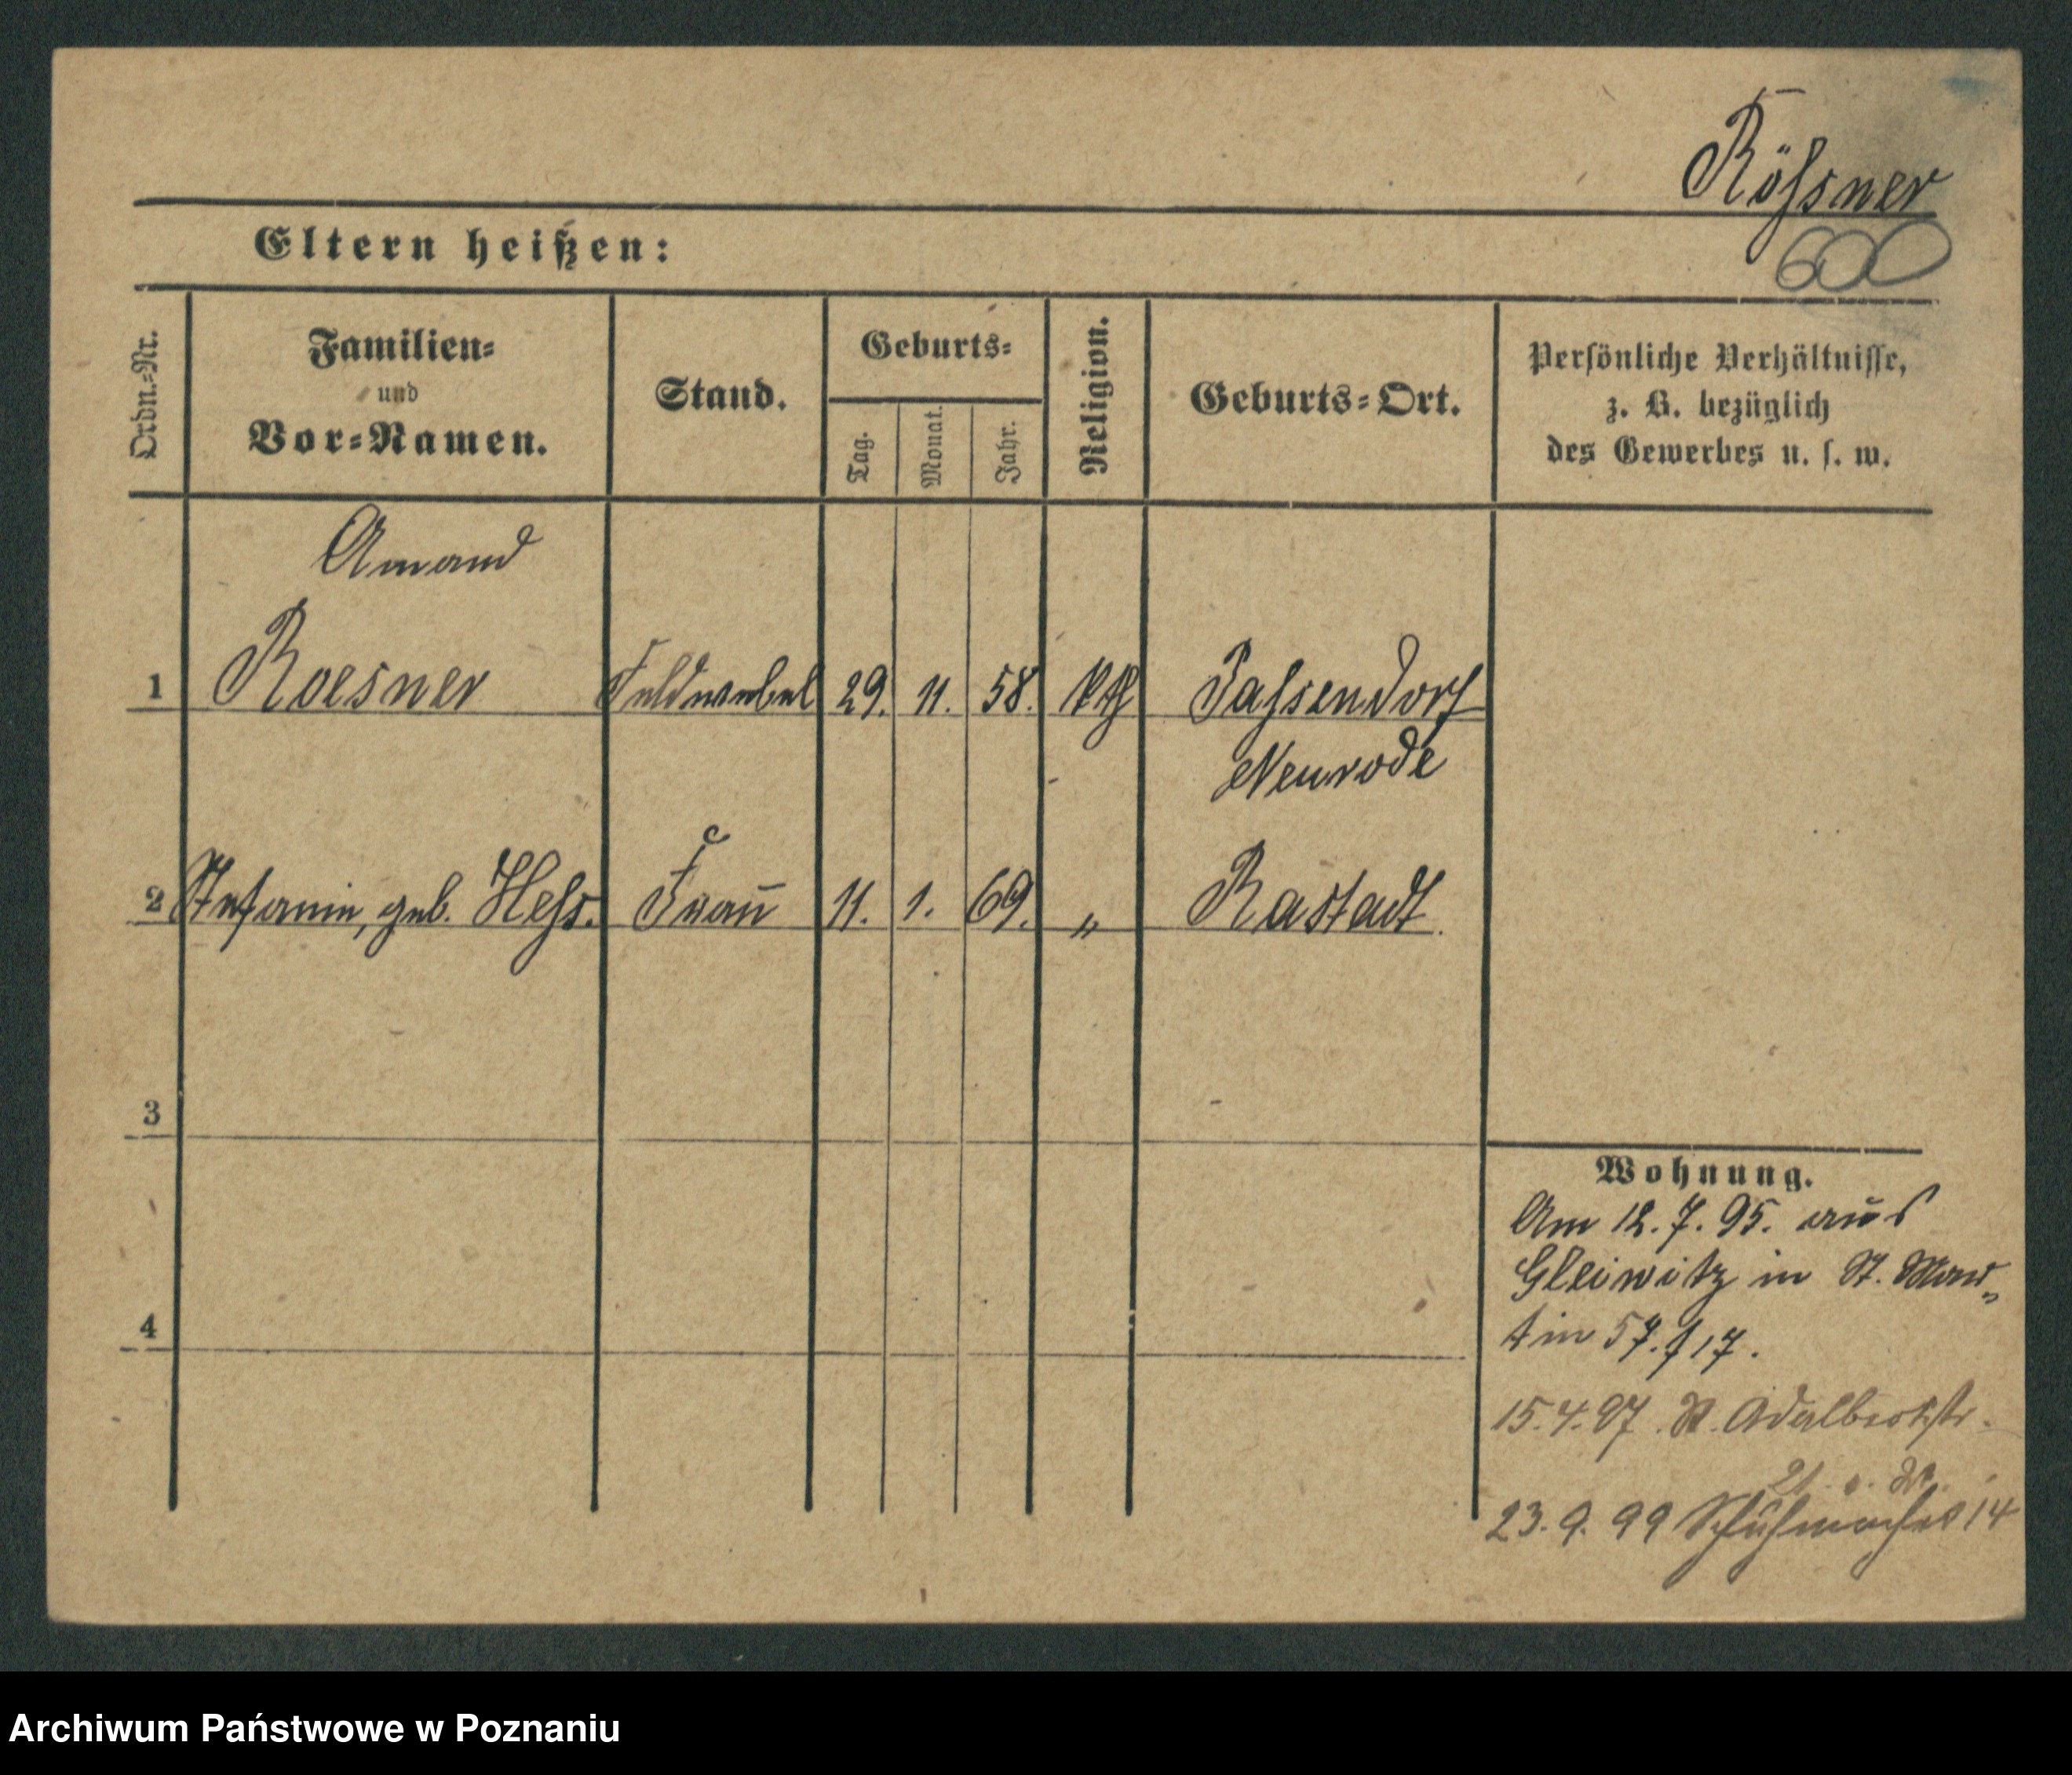 Rößner
600
Eltern heißen:
Ordn.=Nr.
Familien=
und
Vor=Namen.
Stand.
Geburts=
Tag.
Monat.
Jahr.
Religion.
Geburts=Ort.
Persönliche Verhältnisse,
z. B. bezüglich
des Gewerbes u. s. w.
Amand
1 Roesner Feldwebel 29. 11. 58. kth Passendorf
Neurode
2 Stefanie, geb. Hess. Frau 11. 1. 69. „ Rastadt.
3
4
Wohnung.
Am 12. 7. 95. aus
Gleiwitz in St. Mar„
tin 57. f 17.
15. 4. 97. St. Adalbertstr.
21
23. 9. 99 Schuhmacher 14
Archiwum Państwowe w Poznaniu